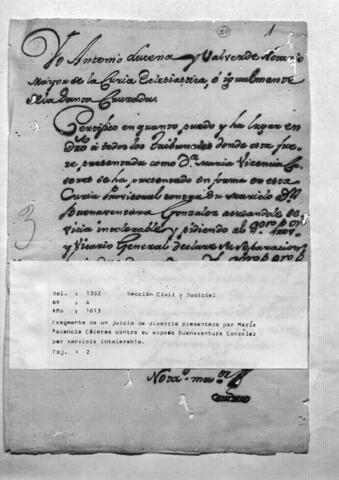 1
Yo Antonio Lucena y Valverde Notario
Mayor de la Curia Eclesiastica, é igualmente
de la Santa Cruzada.
Certifico en quanto puedo y ha lugar en
dro á todos los tribunales donde esta fue-
re presentada como Da. Maria Vicencia Ca-
seres se ha presentado en forma en esta
Curia Provisoral contra su Marido Dn.
Buenaventura Gonzalez acusandole se-
vicia intolerable y pidiendo al
y Vicario General declare su Separacion
3
Vol. : 1302 Sección Civil y Judicial
Nº : 4
Año : 1813
Fragmento de un juicio de divorcio presentado por María
Ascencia Cáceres contra su esposo Buenaventura González
por servicia intolerable.
Foj. : 2